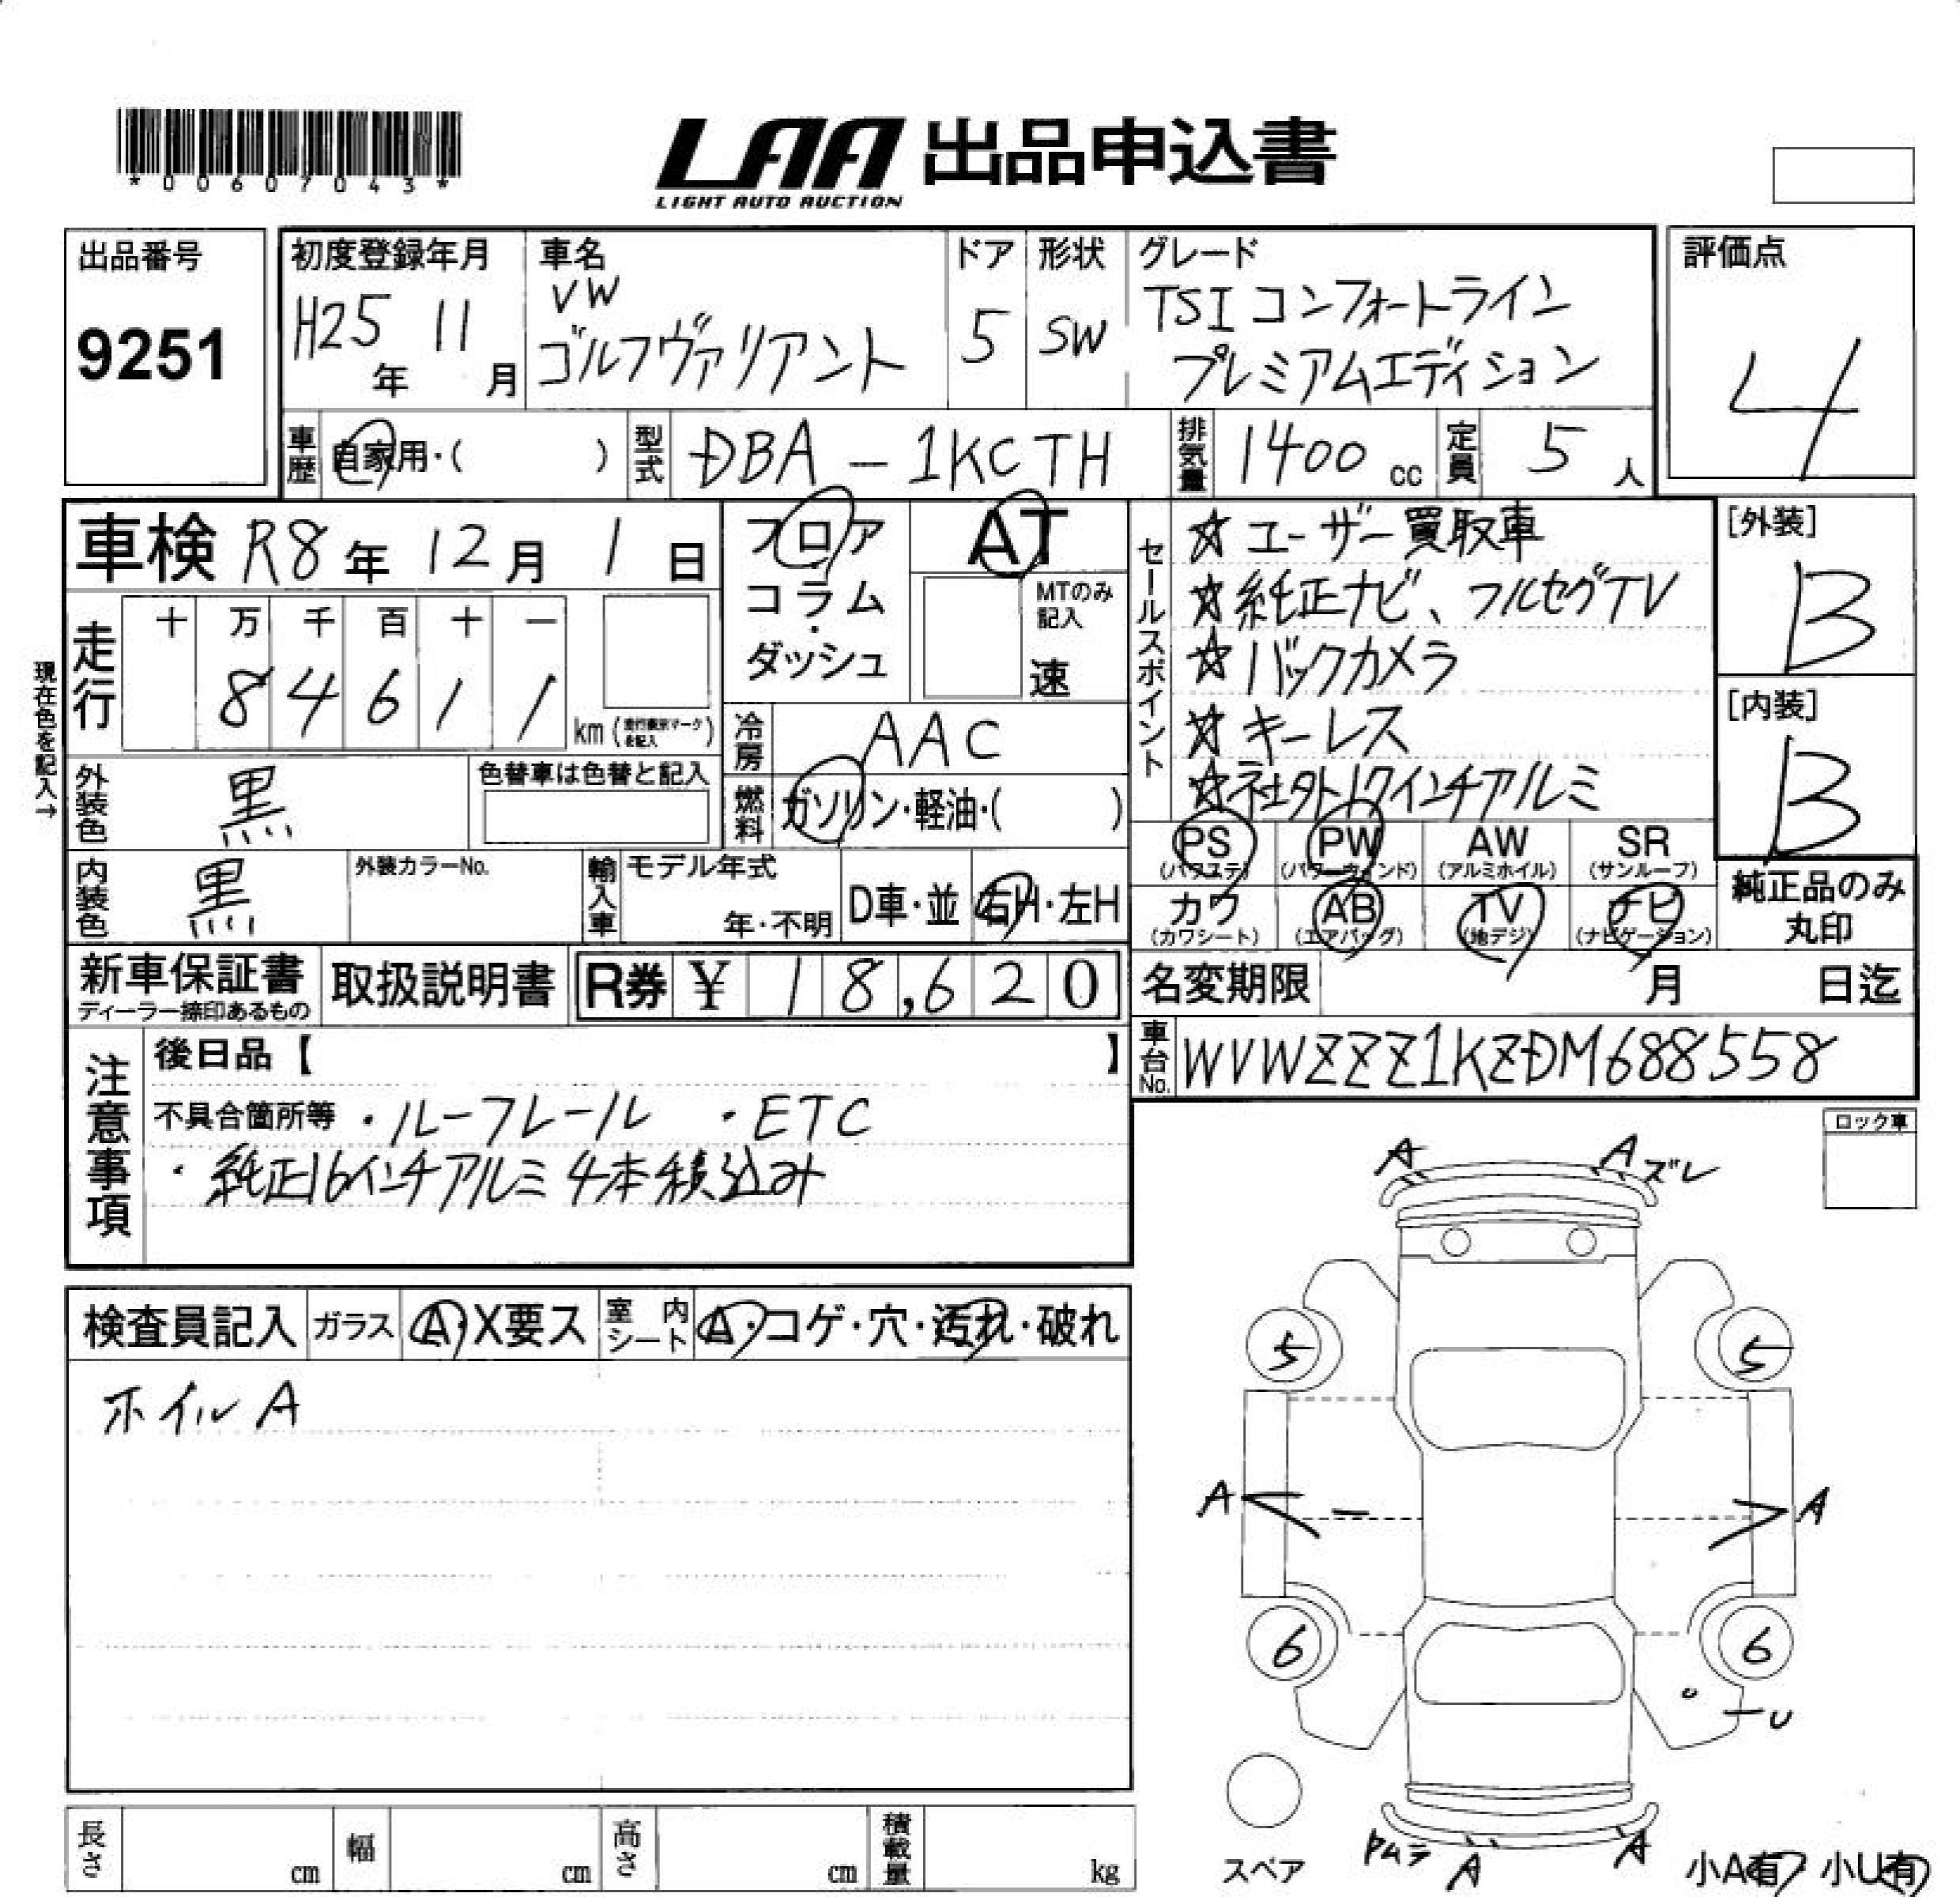 *00607043*
LAA 出品申込書
LIGHT AUTO AUCTION
出品番号
9251
初度登録年月
H25年 11月
車名
VW
ゴルフヴァリアント
ドア
5
形状
SW
グレード
TSI コンフォートライン
プレミアムエディション
評価点
4
車歴 自家用・( )
型式 DBA-1KCTH
排気量 1400 cc
定員 5 人
車検 R8年 12月 1日
現在色を記入→
走行
十 万 千 百 十 一
8 4 6 1 1
km (走行表示マークを記入)
フロア
コラム
・
ダッシュ
AT
MTのみ
記入
速
冷房 AAC
燃料 ガソリン・軽油・( )
外装色 黒
色替車は色替と記入
内装色 黒
外装カラーNo.
輸入車
モデル年式
年・不明
D車・並
右H・左H
セールスポイント
☆ユーザー買取車
☆純正ナビ、フルセグTV
☆バックカメラ
☆キーレス
☆社外17インチアルミ
[外装]
B
[内装]
B
PS (パワステ)
PW (パワーウィンド)
AW (アルミホイル)
SR (サンルーフ)
カワ (カワシート)
AB (エアバッグ)
TV (地デジ)
ナビ (ナビゲーション)
純正品のみ
丸印
新車保証書
ディーラー捺印あるもの
取扱説明書
R券 ¥ 18,620
名変期限 月 日迄
車台No. WVWZZZ1KZDM688558
注意事項
後日品【 】
不具合箇所等 ・ルーフレール ・ETC
・純正16インチアルミ4本積込み
ロック車
検査員記入
ガラス A・X要ス
室内シート A・コゲ・穴・汚れ・破れ
ホイルA
A
A ズレ
5
5
A
A
6
6
U
A
A
スペア
小A有 小U有
長さ cm
幅 cm
高さ cm
積載量 kg